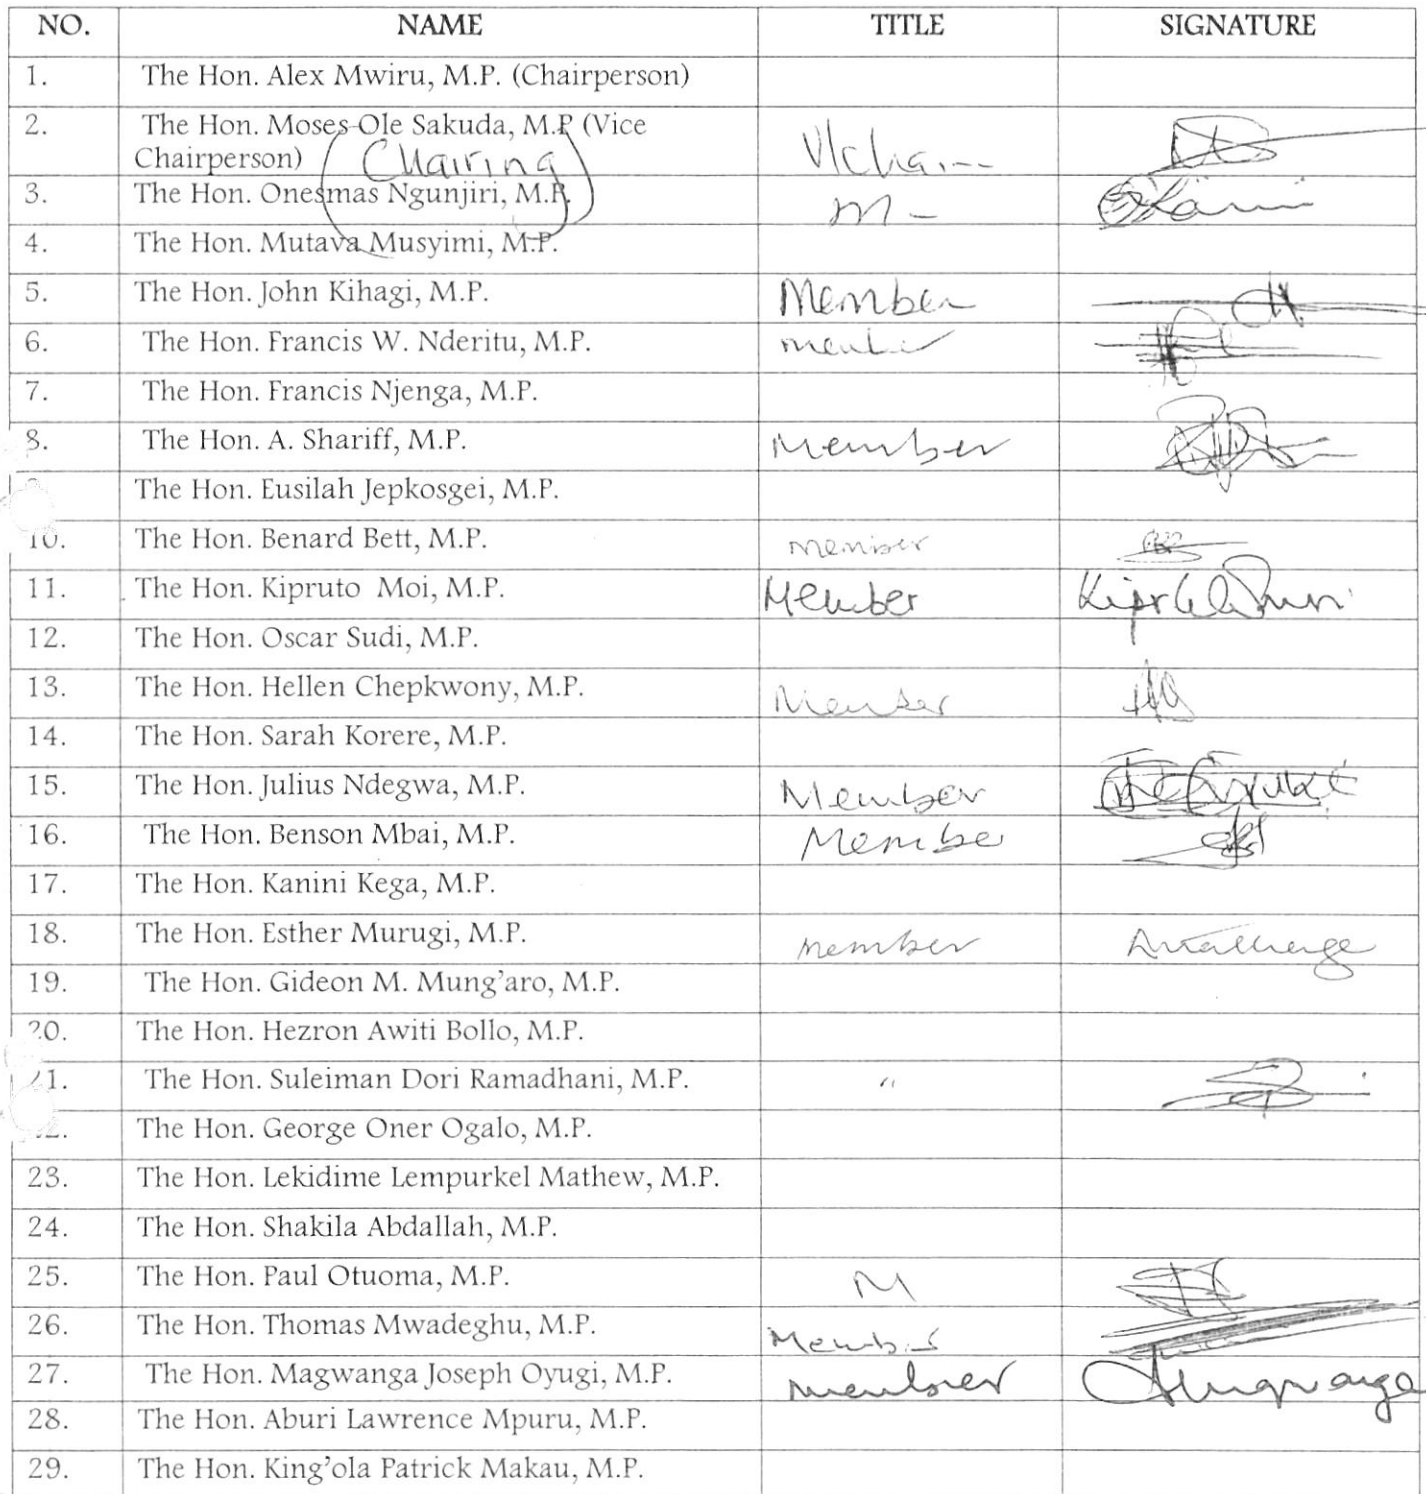 NO. NAME TITLE SIGNATURE
1. The Hon. Alex Mwiru, M.P. (Chairperson)
2. The Hon. Moses Ole Sakuda, M.P (Vice
Chairperson) (Chairing) V/Chair
3. The Hon. Onesmas Ngunjiri, M.P. M
4. The Hon. Mutava Musyimi, M.P.
5. The Hon. John Kihagi, M.P. Member
6. The Hon. Francis W. Nderitu, M.P. member
7. The Hon. Francis Njenga, M.P.
8. The Hon. A. Shariff, M.P. Member
The Hon. Eusilah Jepkosgei, M.P.
10. The Hon. Benard Bett, M.P. member
11. The Hon. Kipruto Moi, M.P. Member
12. The Hon. Oscar Sudi, M.P.
13. The Hon. Hellen Chepkwony, M.P. Member
14. The Hon. Sarah Korere, M.P.
15. The Hon. Julius Ndegwa, M.P. Member
16. The Hon. Benson Mbai, M.P. Member
17. The Hon. Kanini Kega, M.P.
18. The Hon. Esther Murugi, M.P. member
19. The Hon. Gideon M. Mung'aro, M.P.
20. The Hon. Hezron Awiti Bollo, M.P.
21. The Hon. Suleiman Dori Ramadhani, M.P. "
22. The Hon. George Oner Ogalo, M.P.
23. The Hon. Lekidime Lempurkel Mathew, M.P.
24. The Hon. Shakila Abdallah, M.P.
25. The Hon. Paul Otuoma, M.P. M
26. The Hon. Thomas Mwadeghu, M.P. Member
27. The Hon. Magwanga Joseph Oyugi, M.P. member
28. The Hon. Aburi Lawrence Mpuru, M.P.
29. The Hon. King'ola Patrick Makau, M.P.